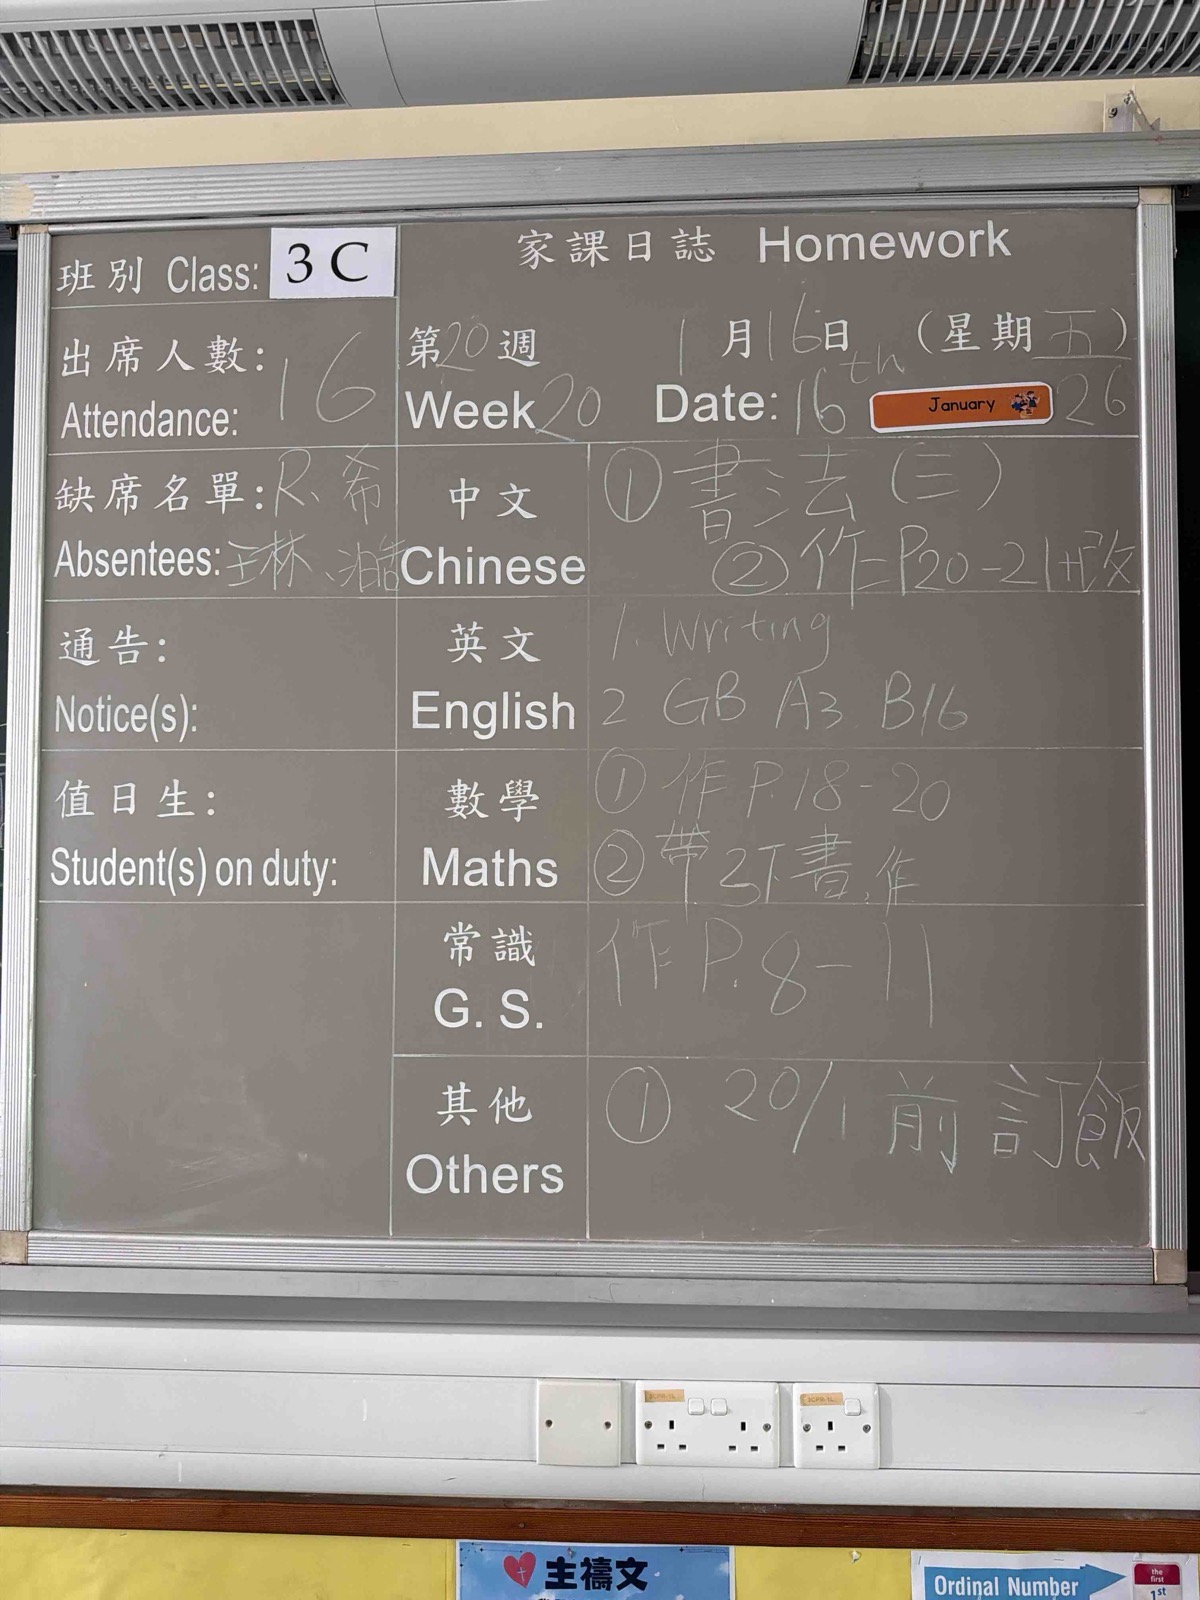 班別 Class: 3 C
家課日誌 Homework
出席人數: 16
Attendance:
第20週 1月16日 (星期五)
Week 20 Date: 16th January 26
缺席名單: R、希
Absentees: 林、浩
中文
Chinese
① 書法(三)
② 作二 P20-21+改
通告:
Notice(s):
英文
English
1. Writing
2 GB A3 B16
值日生:
Student(s) on duty:
數學
Maths
① 作 P.18-20
② 帶3下書,作
常識
G. S.
作 P.8-11
其他
Others
① 20/1 前訂飯
主禱文
Ordinal Number
the first
1st